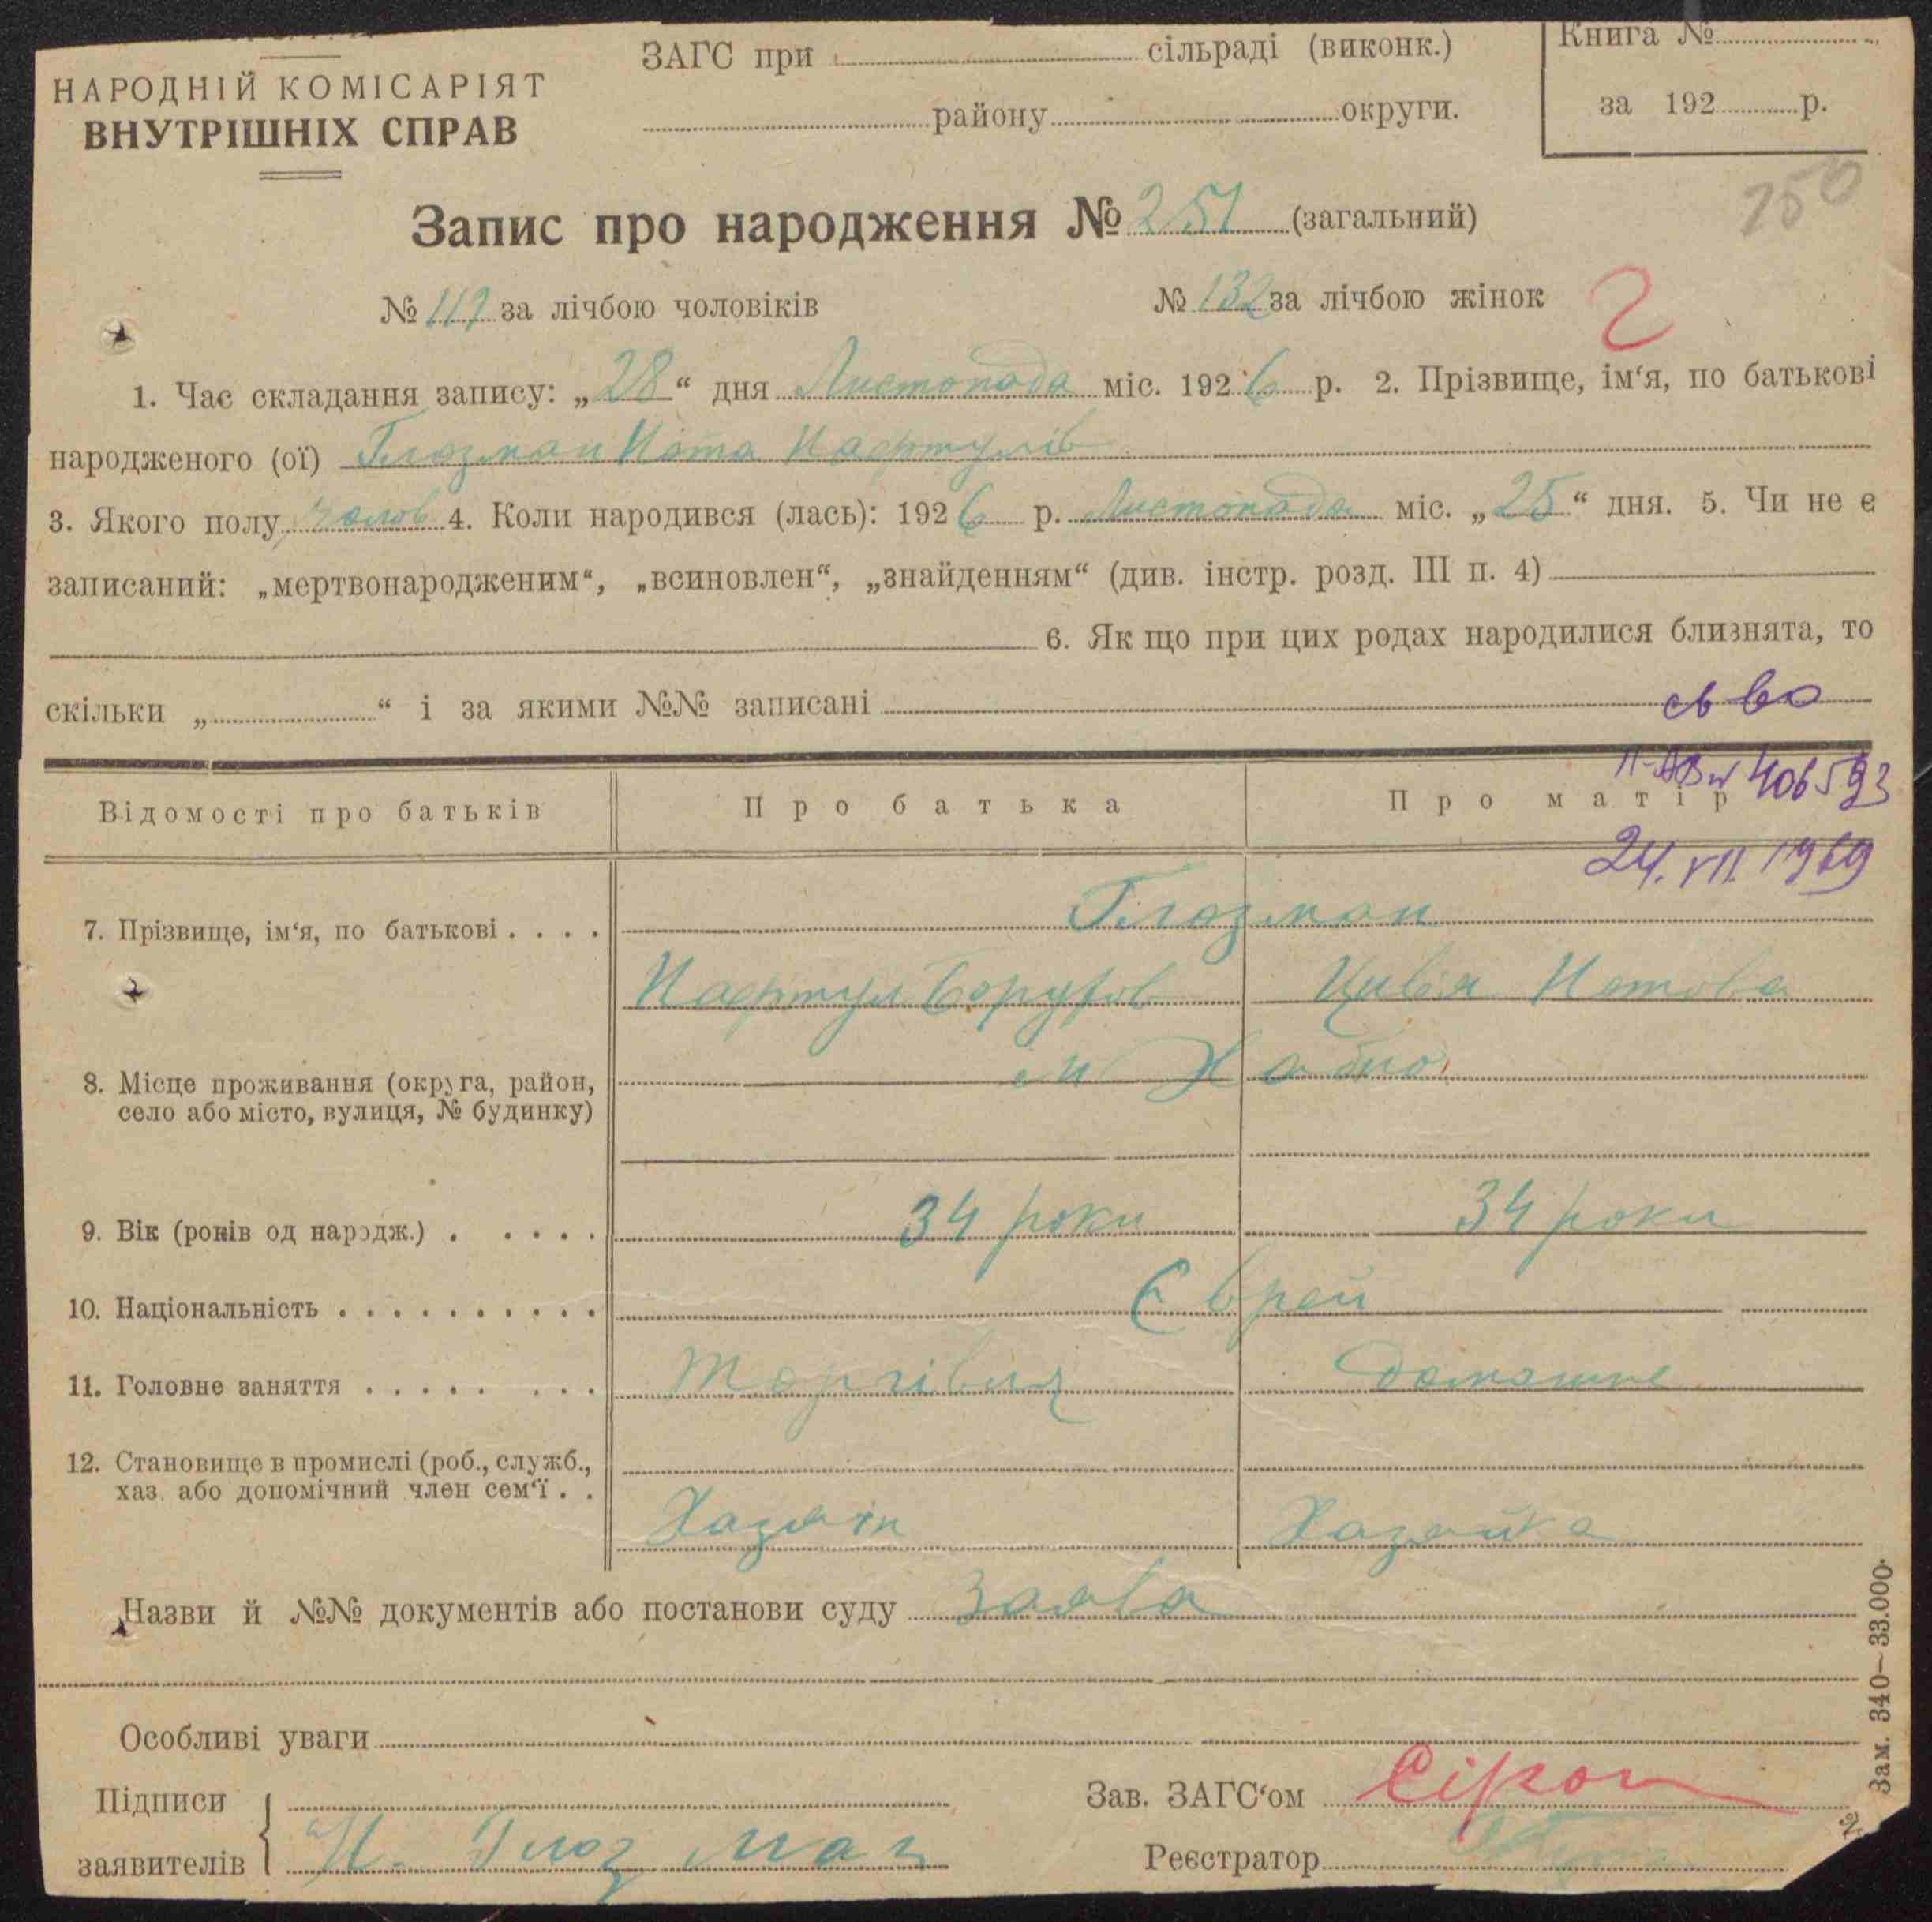 НАРОДНІЙ КОМІСАРІЯТ
ВНУТРІШНІХ СПРАВ
ЗАГС при сільраді (виконк.)
району округи.
Книга №
за 192 р.
250
Запис про народження № 251 (загальний)
№ 119 за лічбою чоловіків № 132 за лічбою жінок
2
1. Час складання запису: „28“ дня Листопада міс. 1926 р. 2. Прізвище, ім‘я, по батькові
народженого (ої) Глозман Нота Нафтулів
3. Якого полу чолов 4. Коли народився (лась): 1926 р. Листопада міс. „25“ дня. 5. Чи не є
записаний: „мертвонародженим“, „всиновлен“, „знайденням“ (див. інстр. розд. III п. 4)
6. Як що при цих родах народилися близнята, то
скільки „ “ і за якими №№ записані
св во
406593
24. VII. 1969
Відомості про батьків Про батька Про матір
7. Прізвище, ім‘я, по батькові Глозман
Нафтул Борухов Цивія Нотова
8. Місце проживання (округа, район,
село або місто, вулиця, № будинку)
м Хабно
9. Вік (років од народж.) 34 роки 34 роки
10. Національність Єврей
11. Головне заняття Торгівля домашне
12. Становище в промислі (роб., служб.,
хаз. або допомічний член сем‘ї
Хазяїн Хазяйка
Назви й №№ документів або постанови суду Заява
Особливі уваги
Підписи
заявителів Н. Глозман
Зав. ЗАГС‘ом
Реєстратор
Зам. 340—33.000.